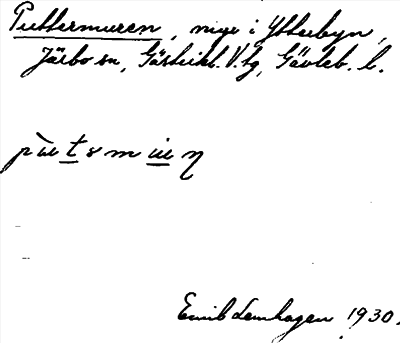 Puttermuren, nige i Ytterbyn,
Järbo sn, Gästrikl. V. tg, Gävleb. l.
Emil Lenhagen 1930.